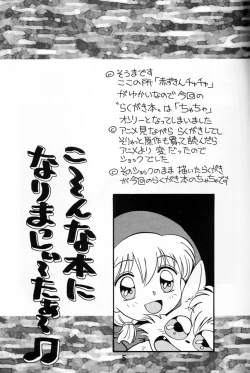 ◎そうまです
ここの所「赤ずきんチャチャ」
がゆかいなので今回の
"らくがき本"は「ちゃちゃ」
オンリーとなってしまいました
◎アニメ見ながら らくがきしてして
そりゃっと原作も買って読んだら
アニメより 変だったので
ショックでした
◎そのショックのまま描いたらくがき
が今回のらくがき本のちゃちゃです
こそんな本に
なりまっしゃたぁ～♫